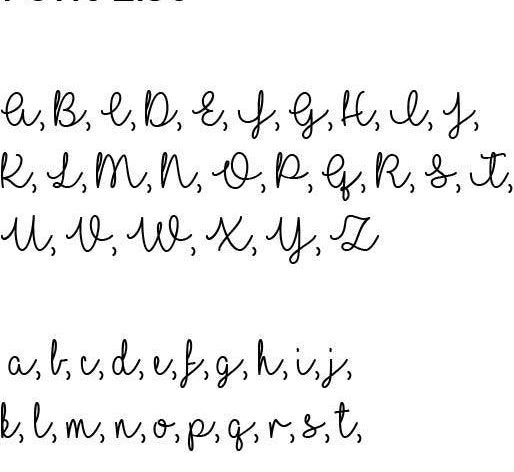 A, B, C, D, E, F, G, H, I, J,
K, L, M, N, O, P, Q, R, S, T,
U, V, W, X, Y, Z
a, b, c, d, e, f, g, h, i, j,
k, l, m, n, o, p, q, r, s, t,